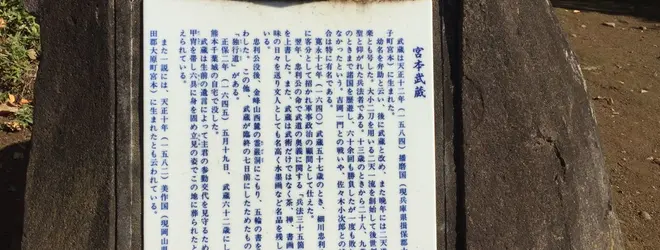 宮本武蔵
武蔵は天正十二年(一五八四)播磨国(現兵庫県揖保郡太
子町宮本)に生まれた。
幼名を弁助と云い、後に武蔵と改め、また晩年には二天
楽とも号した。大小二刀を用いる二天一流を創始して後世
聖と仰がれた兵法者である。十三歳のときから二十八、九
のときまで諸国を歴遊し、六十余たびも勝負したが一度も
なかったという。吉岡一門との戦いや、佐々木小次郎との
合は特に有名である。
寛永十七年(一六四〇)武蔵五十七歳のとき、細川忠利
に客分として招かれ軍事や政治の顧問として仕えた。
翌年、忠利公の命で武道の奥義に関する「兵法三十五箇
を上書した。また、武蔵は武術だけではなく茶、禅、書画
味の日々を送り文人としても名高く水墨画など名品を残し
いる。
忠利公没後、金峰山西麓の霊巌洞にこもり、五輪の書を
わした。この他、武蔵が臨終の七日前にしたためたもの
「独行道」がある。
正保二年(一六四五)五月十九日、武蔵六十二歳にし
熊本千葉城の自宅で没した。
武蔵は生前の遺言によって主君の参勤交代を見守るため
甲冑を帯し六具に身を固め立見の姿でこの地に葬られた
えられている。
また一説には、天正十年(一五八二)美作国(現岡山県
田郡大原町宮本)に生まれたとも云われている。